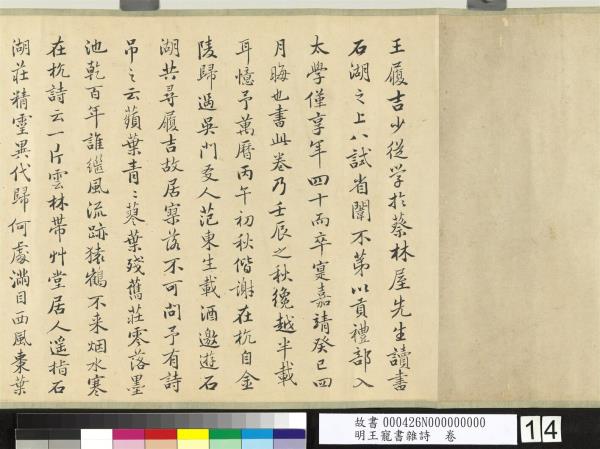 王履吉少從学於蔡林屋先生讀書
石湖之上八試省闈不第以貢禮部入
太學僅享年四十而卒寔嘉靖癸巳四
月晦也書此卷乃壬辰之秋纔越半載
耳憶予萬曆丙午初秋偕謝在杭自金
陵歸過吳門友人范東生載酒邀遊石
湖共尋履吉故居寥落不可問予有詩
吊之云蘋葉青〻蓼葉殘舊莊零落墨
池乾百年誰繼風流跡猿鶴不来烟水寒
在杭詩云一片雲林帶艸堂居人遥指石
湖莊精靈異代歸何處滿目西風棗葉
故書 000426N000000000
明王寵書雜詩 卷
14